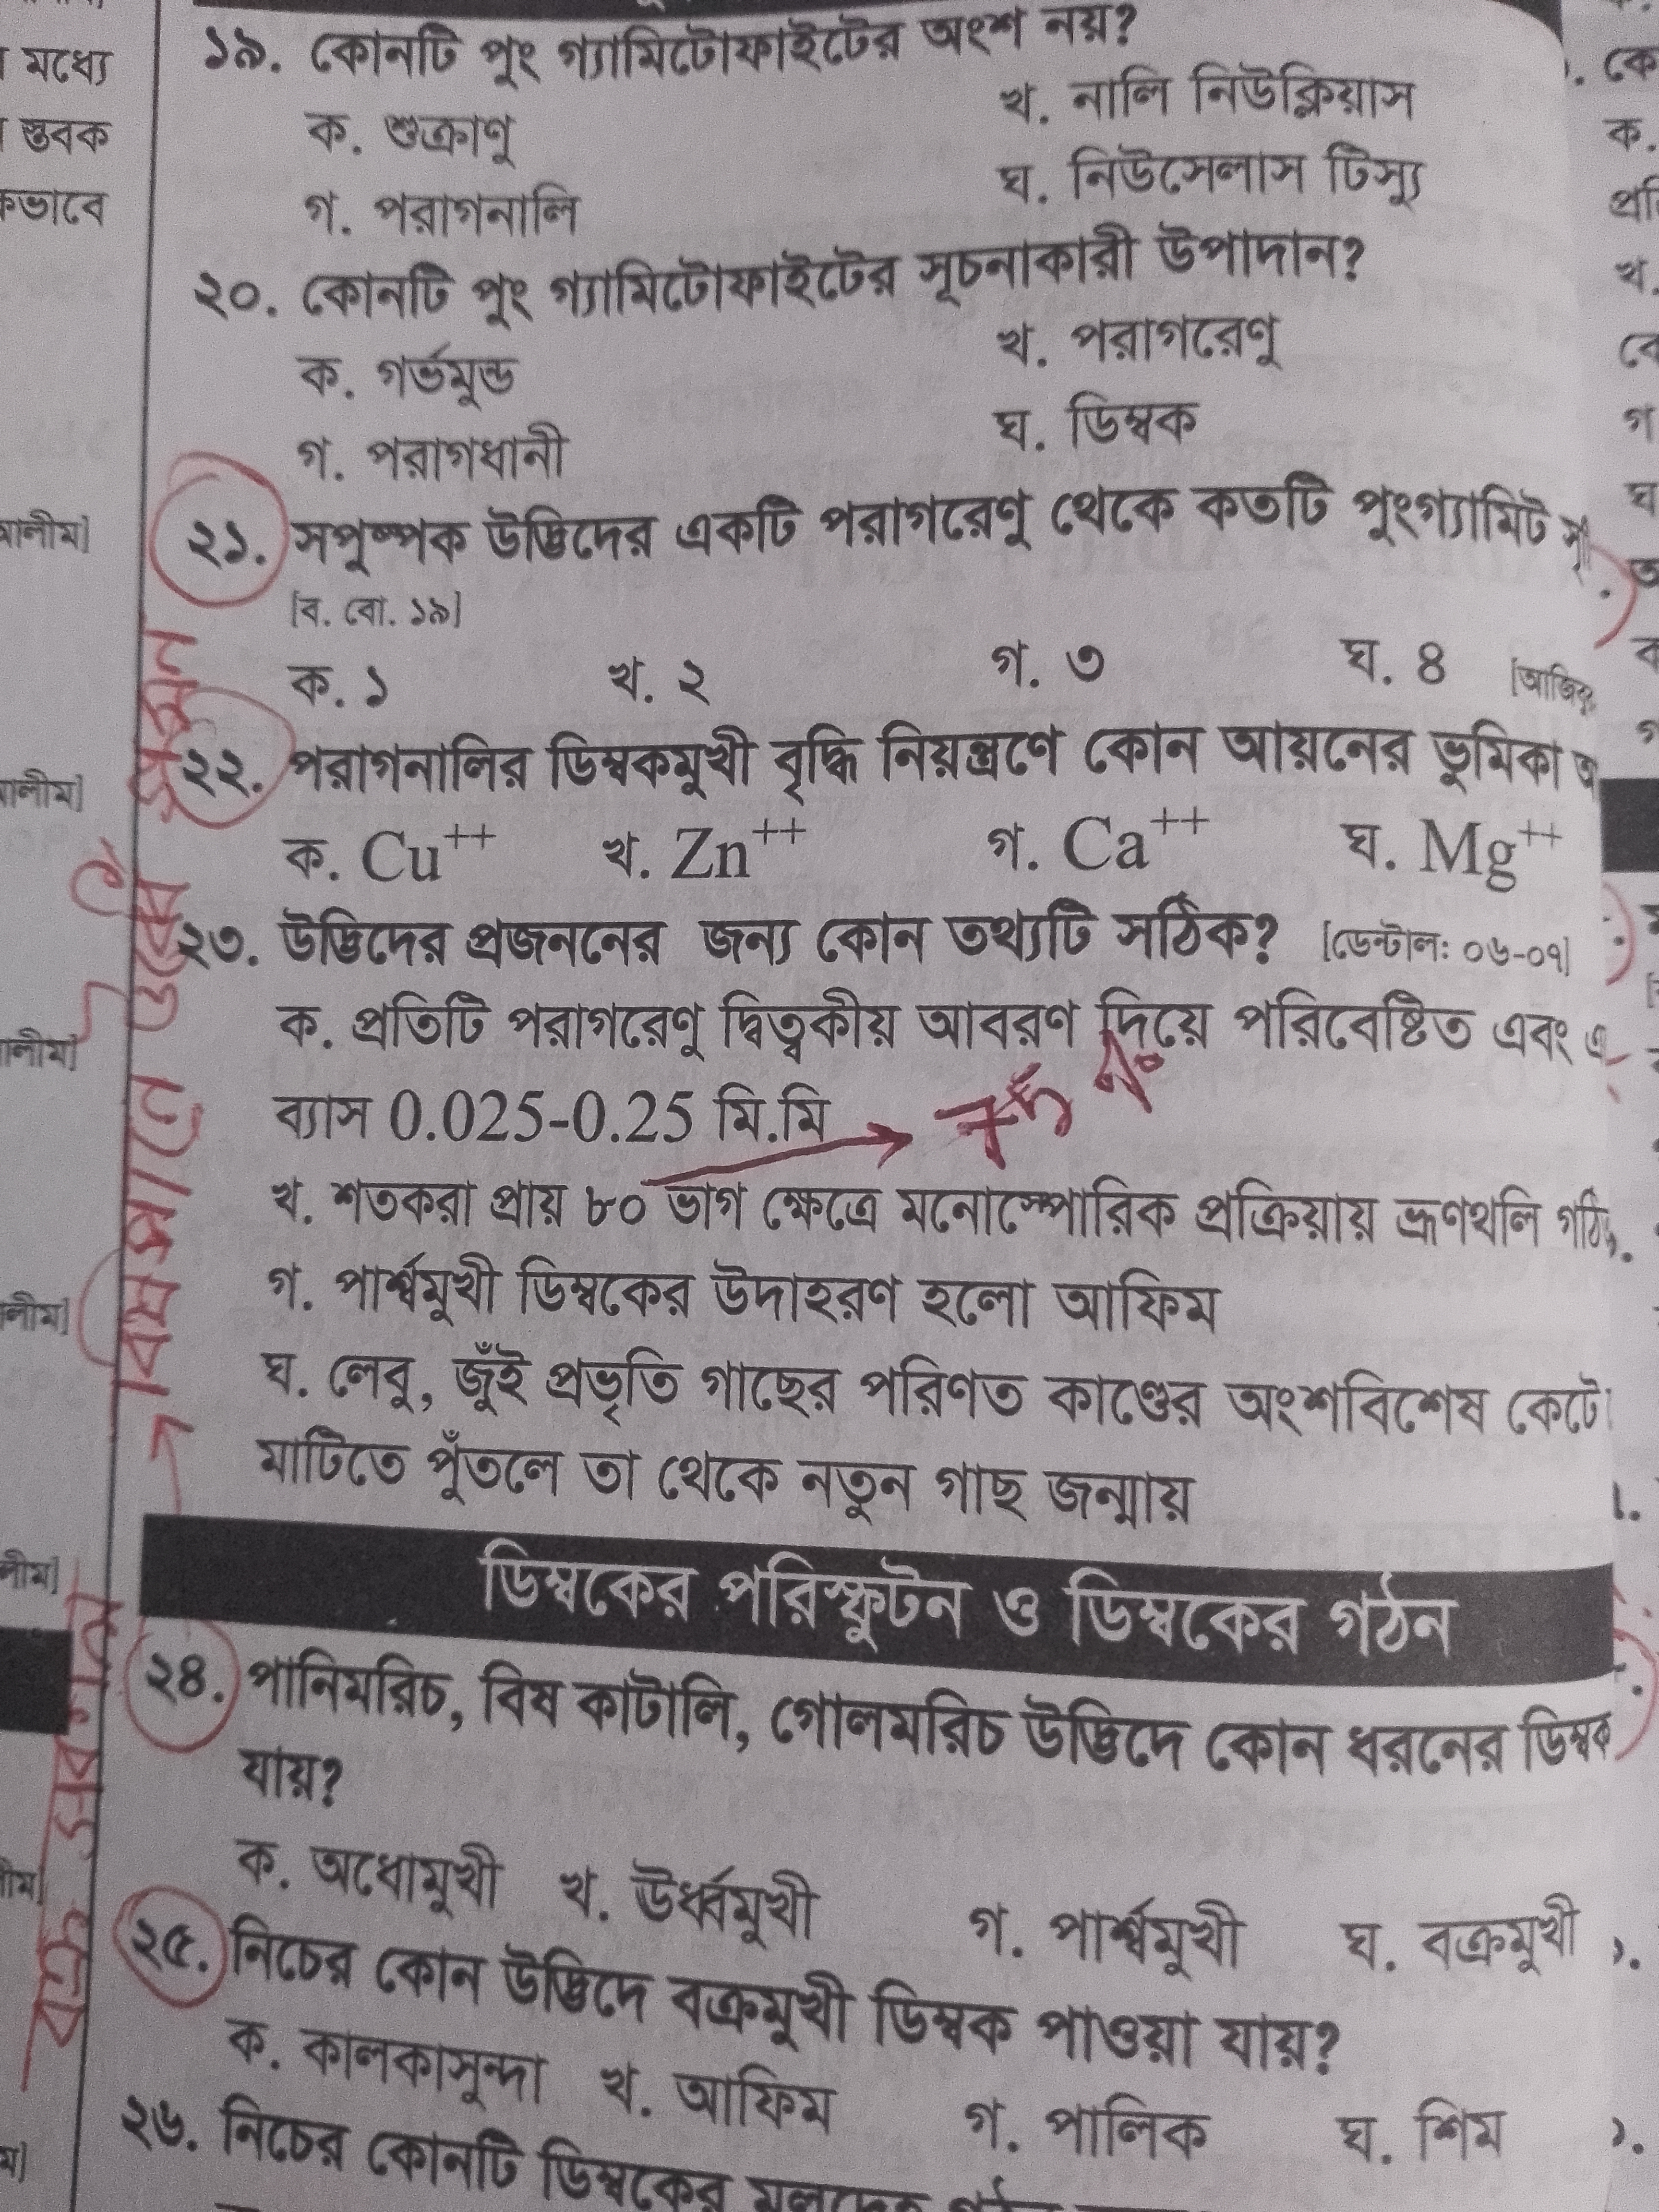 মধ্যে
স্তবক
কভাবে
১৯. কোনটি পুং গ্যামিটোফাইটের অংশ নয়?
ক. শুক্রাণু খ. নালি নিউক্লিয়াস
গ. পরাগনালি ঘ. নিউসেলাস টিস্যু
২০. কোনটি পুং গ্যামিটোফাইটের সূচনাকারী উপাদান?
ক. গর্ভমুন্ড খ. পরাগরেণু
গ. পরাগধানী ঘ. ডিম্বক
২১. সপুষ্পক উদ্ভিদের একটি পরাগরেণু থেকে কতটি পুংগ্যামিট
[ব. বো. ১৯]
ক. ১ খ. ২ গ. ৩ ঘ. ৪
২২. পরাগনালির ডিম্বকমুখী বৃদ্ধি নিয়ন্ত্রণে কোন আয়নের ভুমিকা
ক. Cu++ খ. Zn++ গ. Ca++ ঘ. Mg++
২৩. উদ্ভিদের প্রজননের জন্য কোন তথ্যটি সঠিক? [ডেন্টাল: ০৬-০৭]
ক. প্রতিটি পরাগরেণু দ্বিত্বকীয় আবরণ দিয়ে পরিবেষ্টিত এবং
ব্যাস 0.025-0.25 মি.মি
খ. শতকরা প্রায় ৮০ ভাগ ক্ষেত্রে মনোস্পোরিক প্রক্রিয়ায় ভ্রূণথলি
গ. পার্শ্বমুখী ডিম্বকের উদাহরণ হলো আফিম
ঘ. লেবু, জুঁই প্রভৃতি গাছের পরিণত কাণ্ডের অংশবিশেষ কেটে
মাটিতে পুঁতলে তা থেকে নতুন গাছ জন্মায়
ডিম্বকের পরিস্ফুটন ও ডিম্বকের গঠন
২৪. পানিমরিচ, বিষ কাটালি, গোলমরিচ উদ্ভিদে কোন ধরনের ডিম্বক
যায়?
ক. অধোমুখী খ. ঊর্ধ্বমুখী গ. পার্শ্বমুখী ঘ. বক্রমুখী
২৫. নিচের কোন উদ্ভিদে বক্রমুখী ডিম্বক পাওয়া যায়?
ক. কালকাসুন্দা খ. আফিম গ. পালিক ঘ. শিম
২৬. নিচের কোনটি ডিম্বকের